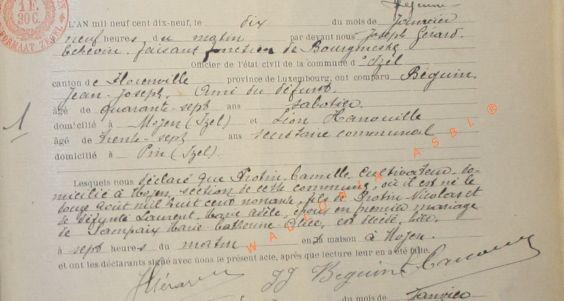 1 F.
20 C.
FORMAAT ZEGEL
L'AN mil neuf cent dix-neuf, le dix du mois de Janvier
neuf heures du matin par devant nous Joseph Gérard
Echevin faisant fonction de Bourgmestre
Officier de l'état civil de la commune d'Izel
canton de Florenville province de Luxembourg, ont comparu Béguin
Jean-Joseph, Ami du défunt
âgé de quarante-sept ans Sabotier
domicilié à Moyen (Izel) et Léon
âgé de trente-sept ans secrétaire communal
domicilié à Pin (Izel)
1
Lesquels nous déclaré que Protin Camille cultivateur do-
micilié à Moyen, section de cette commune, où il est né le
douze août mil huit cent nonante, fils de Protin Nicolas et
de défunte Laurent, Marie Adèle, époux en premier mariage
de Jampaix Marie Catherine est décédé hier
à sept heures du matin en sa maison à Moyen
et ont les déclarants signé avec nous le présent acte, après que lecture leur en a été faite.
JJ Beguin
du mois de Janvier
WADELUX ASBL ®